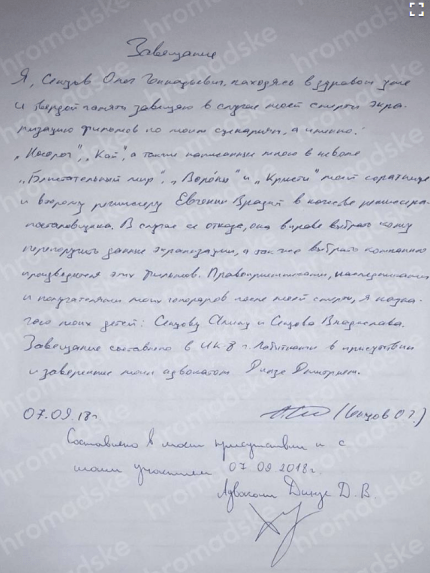 Завещание
Я, Сенцов Олег Геннадьевич, находясь в здравом уме
и твердой памяти завещаю в случае моей смерти экра-
низацию фильмов по моим сценариям, а именно:
„Носорог", „Кай", а также написанные мною в неволе
и второму режиссеру Евгении Врадий в качестве режиссера-
постановщика. В случае ее отказа, она вправе выбрать кому
перепоручить данные экранизации, а также выбрать компанию
производителя этих фильмов. Правоприемниками, наследниками
и получателями моих гонораров после моей смерти, я назна-
чаю моих детей: Сенцову Алину и Сенцова Владислава.
Завещание составлено в ИК 8 г. Лабытнанги в присутствии
и заверенное моим адвокатом Динзе Дмитрием.
07.09.18г. (Сенцов О Г)
Составлено в моем присутствии и с
моим участием 07 09 2018г.
Адвокат Динзе Д. В.
hromadske